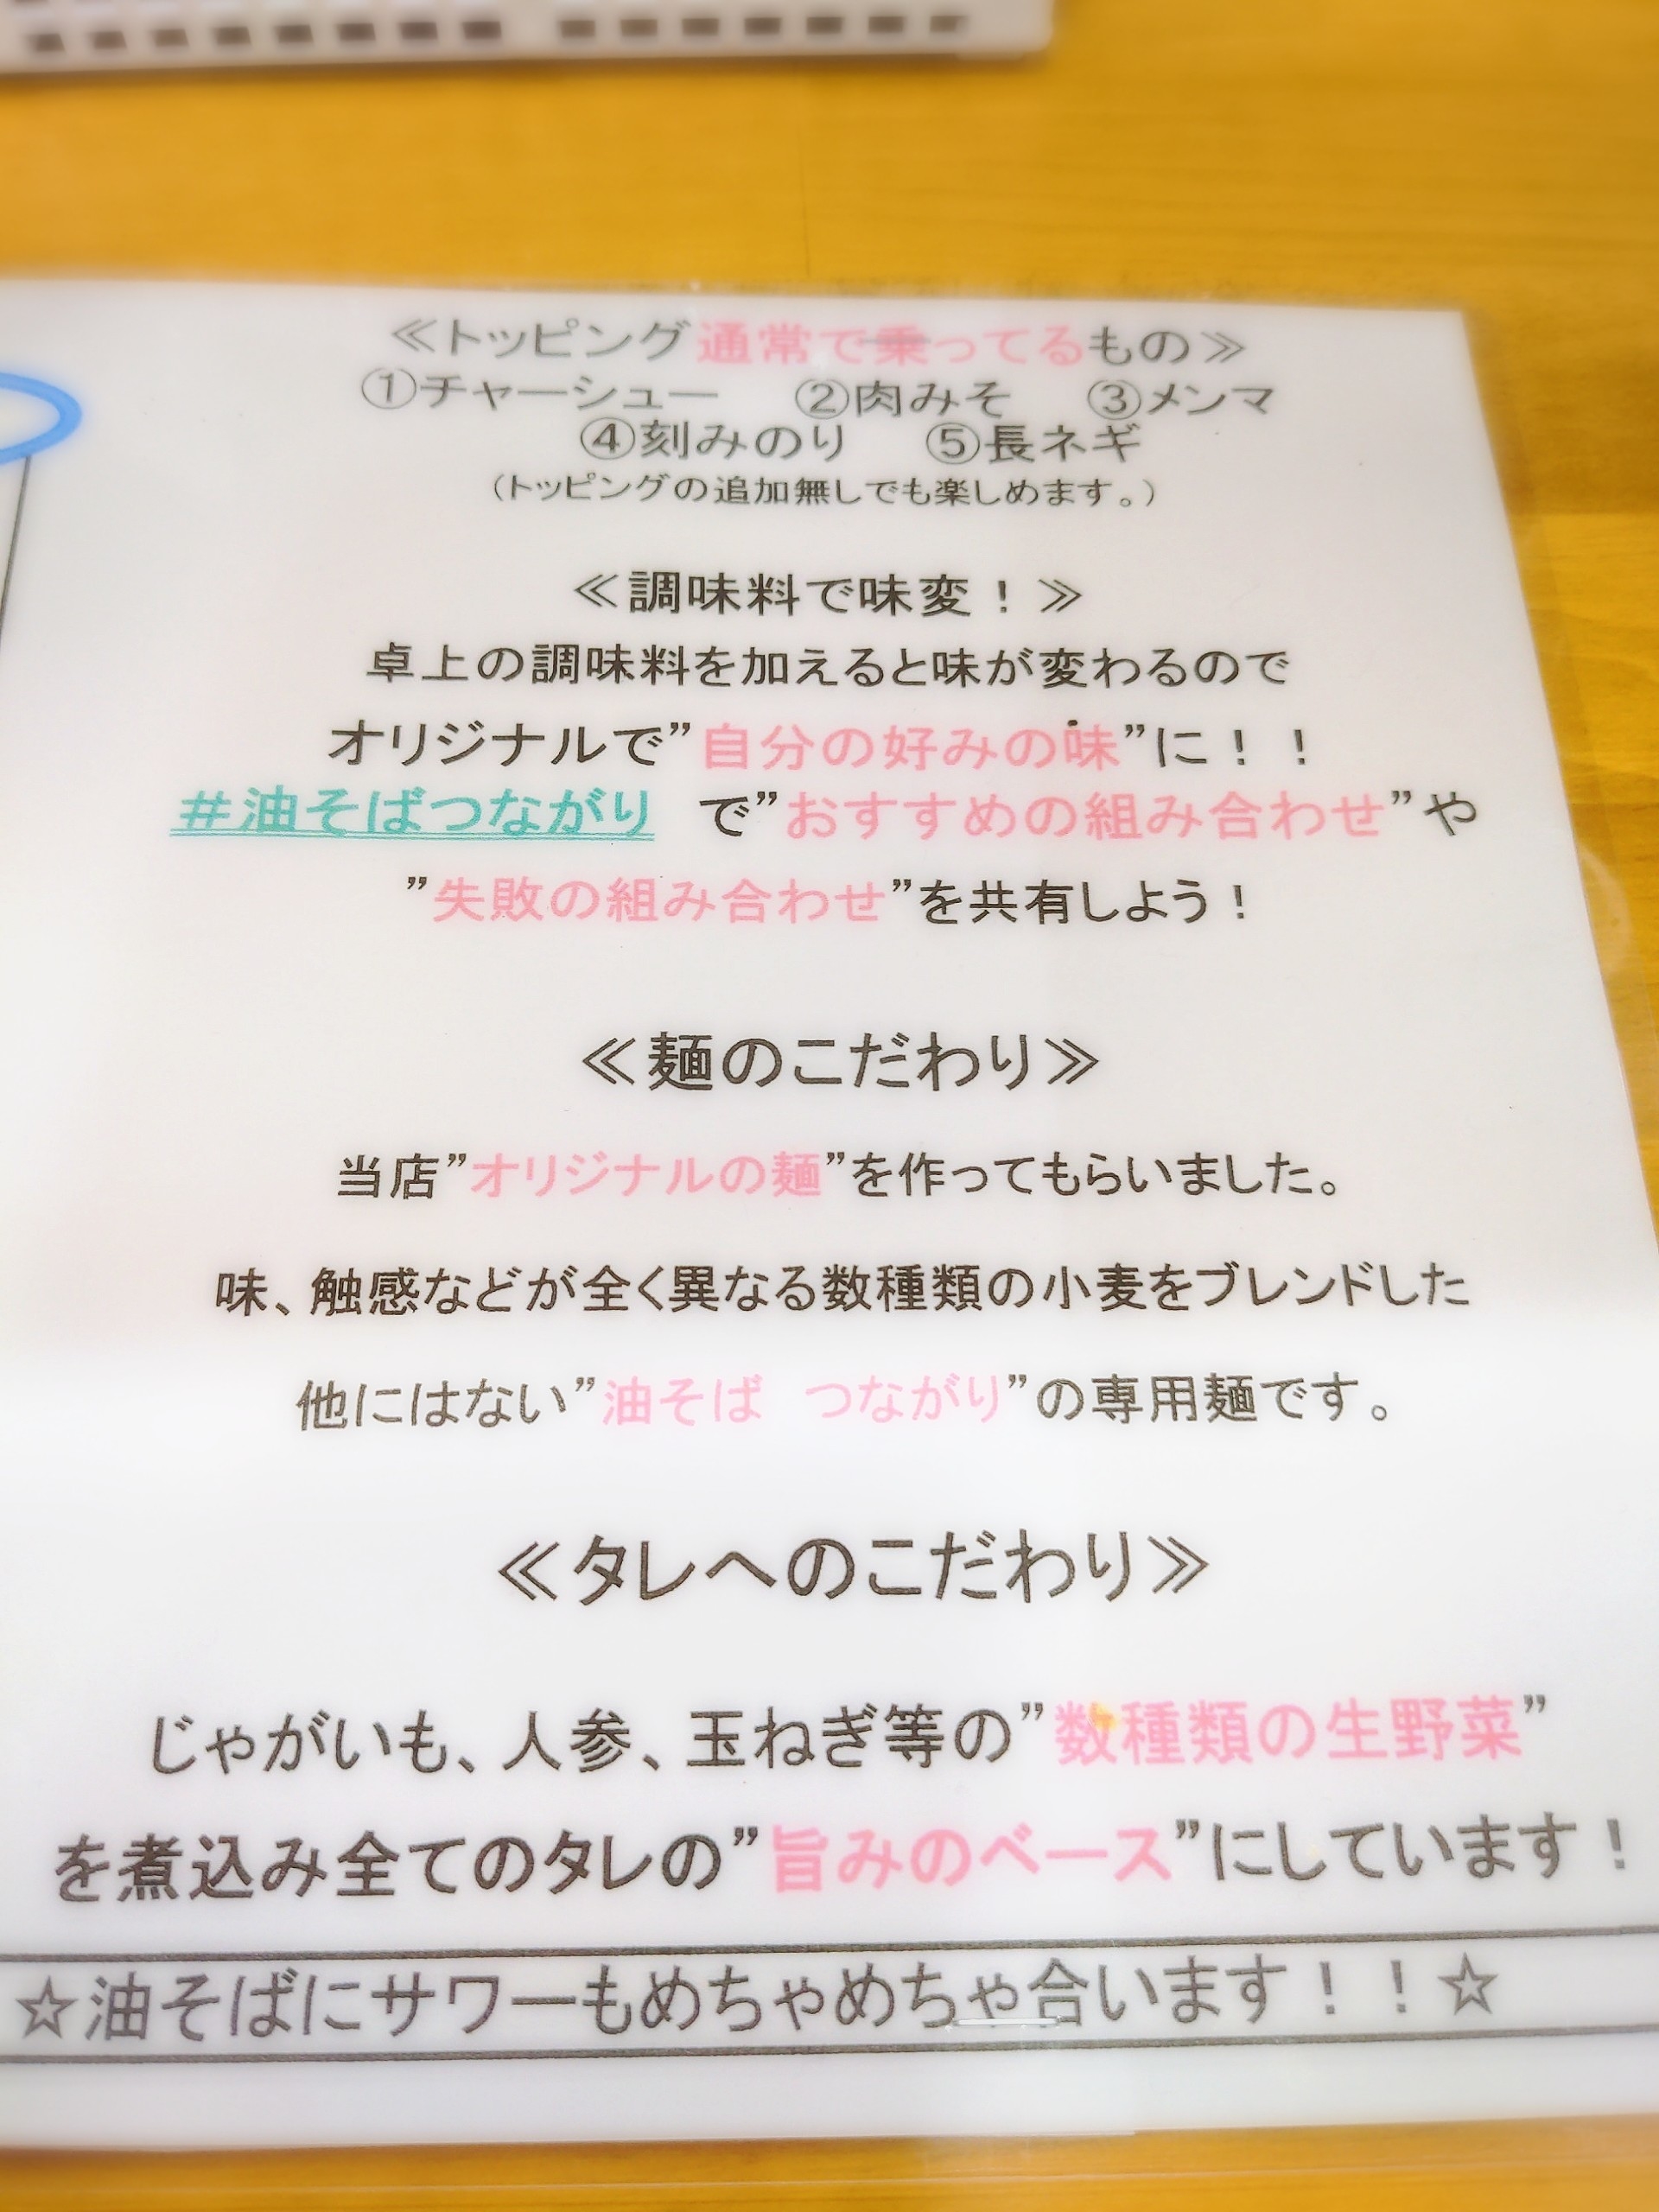 ≪トッピング通常で乗ってるもの≫
①チャーシュー ②肉みそ ③メンマ
④刻みのり ⑤長ネギ
（トッピングの追加無しでも楽しめます。）
≪調味料で味変！≫
卓上の調味料を加えると味が変わるので
オリジナルで”自分の好みの味”に！！
＃油そばつながり で”おすすめの組み合わせ”や
”失敗の組み合わせ”を共有しよう！
≪麺のこだわり≫
当店”オリジナルの麺”を作ってもらいました。
味、触感などが全く異なる数種類の小麦をブレンドした
他にはない”油そば つながり”の専用麺です。
≪タレへのこだわり≫
じゃがいも、人参、玉ねぎ等の”数種類の生野菜”
を煮込み全てのタレの”旨みのベース”にしています！
☆油そばにサワーもめちゃめちゃ合います！！☆